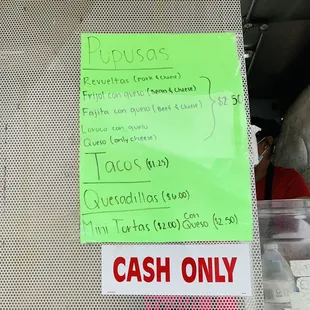 Pupusas
Revueltas (Pork & cheese)
Frijol con queso (Bean & cheese)
Fajita con queso (Beef & cheese)
$2.50
Loroco con queso
Queso (only cheese)
Tacos ($1.25)
Quesadillas ($6.00)
Mini Tortas ($2.00) con Queso ($2.50)
CASH ONLY